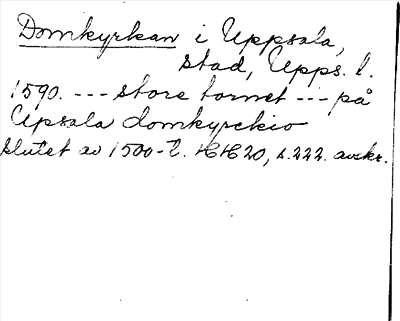 Domkyrkan i Uppsala,
stad, Upps. l.
1590. --- store tornet --- på
Upsala domkyrckio
slutet av 1500-t. HH20, s.222. avskr.